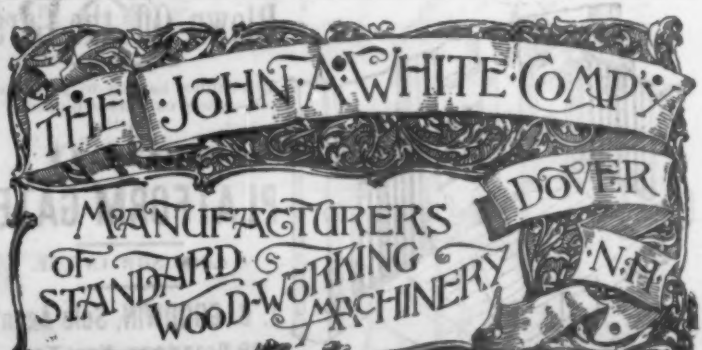 THE JOHN·A·WHITE·COMP'Y
DOVER
·N·H·
MANUFACTURERS
OF STANDARD WOOD-WORKING MACHINERY